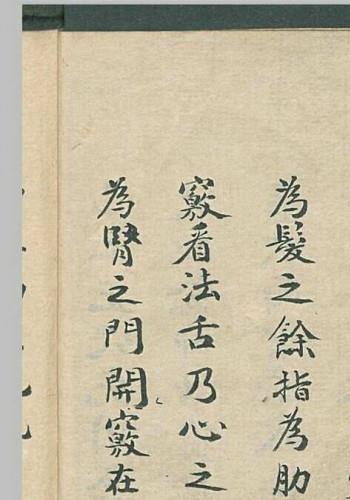 為髮之餘指為肋
竅看法舌乃心之
為腎之門開竅在